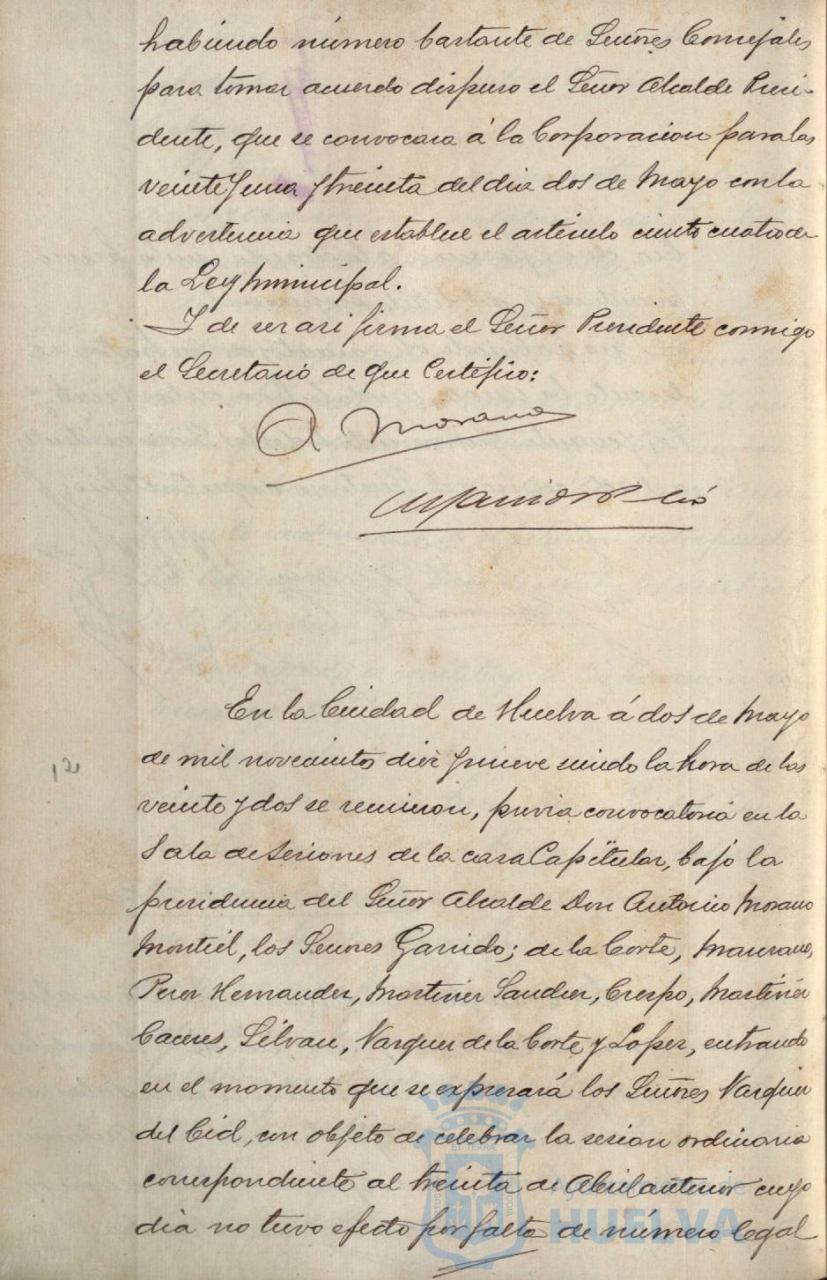 habiendo número bastante de Señores Concejales
para tomar acuerdo dispuso el Señor Alcalde Presi-
dente, que se convocara á la Corporacion para las
veinte y una y treinta del dia dos de Mayo con la
advertencia que establece el artículo ciento cuatro de
la Ley Municipal.
Y de ser asi firma el Señor Presidente conmigo
el Secretario de que Certifico:
A Morano
En la Ciudad de Huelva á dos de Mayo
12
de mil noveciento diez y nueve siendo la hora de las
veinte y dos se reunieron, previa convocatoria en la
Sala de Sesiones de la casa Capitular, bajo la
presidencia del Señor Alcalde Don Antonio Morano
Montiel, los Señores Garrido; de la Corte, Manzano,
Perez Hernandez, Martinez Sanchez, Crespo, Martinez
Caceres, Silvan, Vazquez de la Corte y Lopez, entrando
en el momento que se expresará los Señores Vazquez
del Cid, con objeto de celebrar la sesion ordinaria
correspondiente al treinta de Abril anterior cuyo
dia no tuvo efecto por falta de número legal
HUELVA